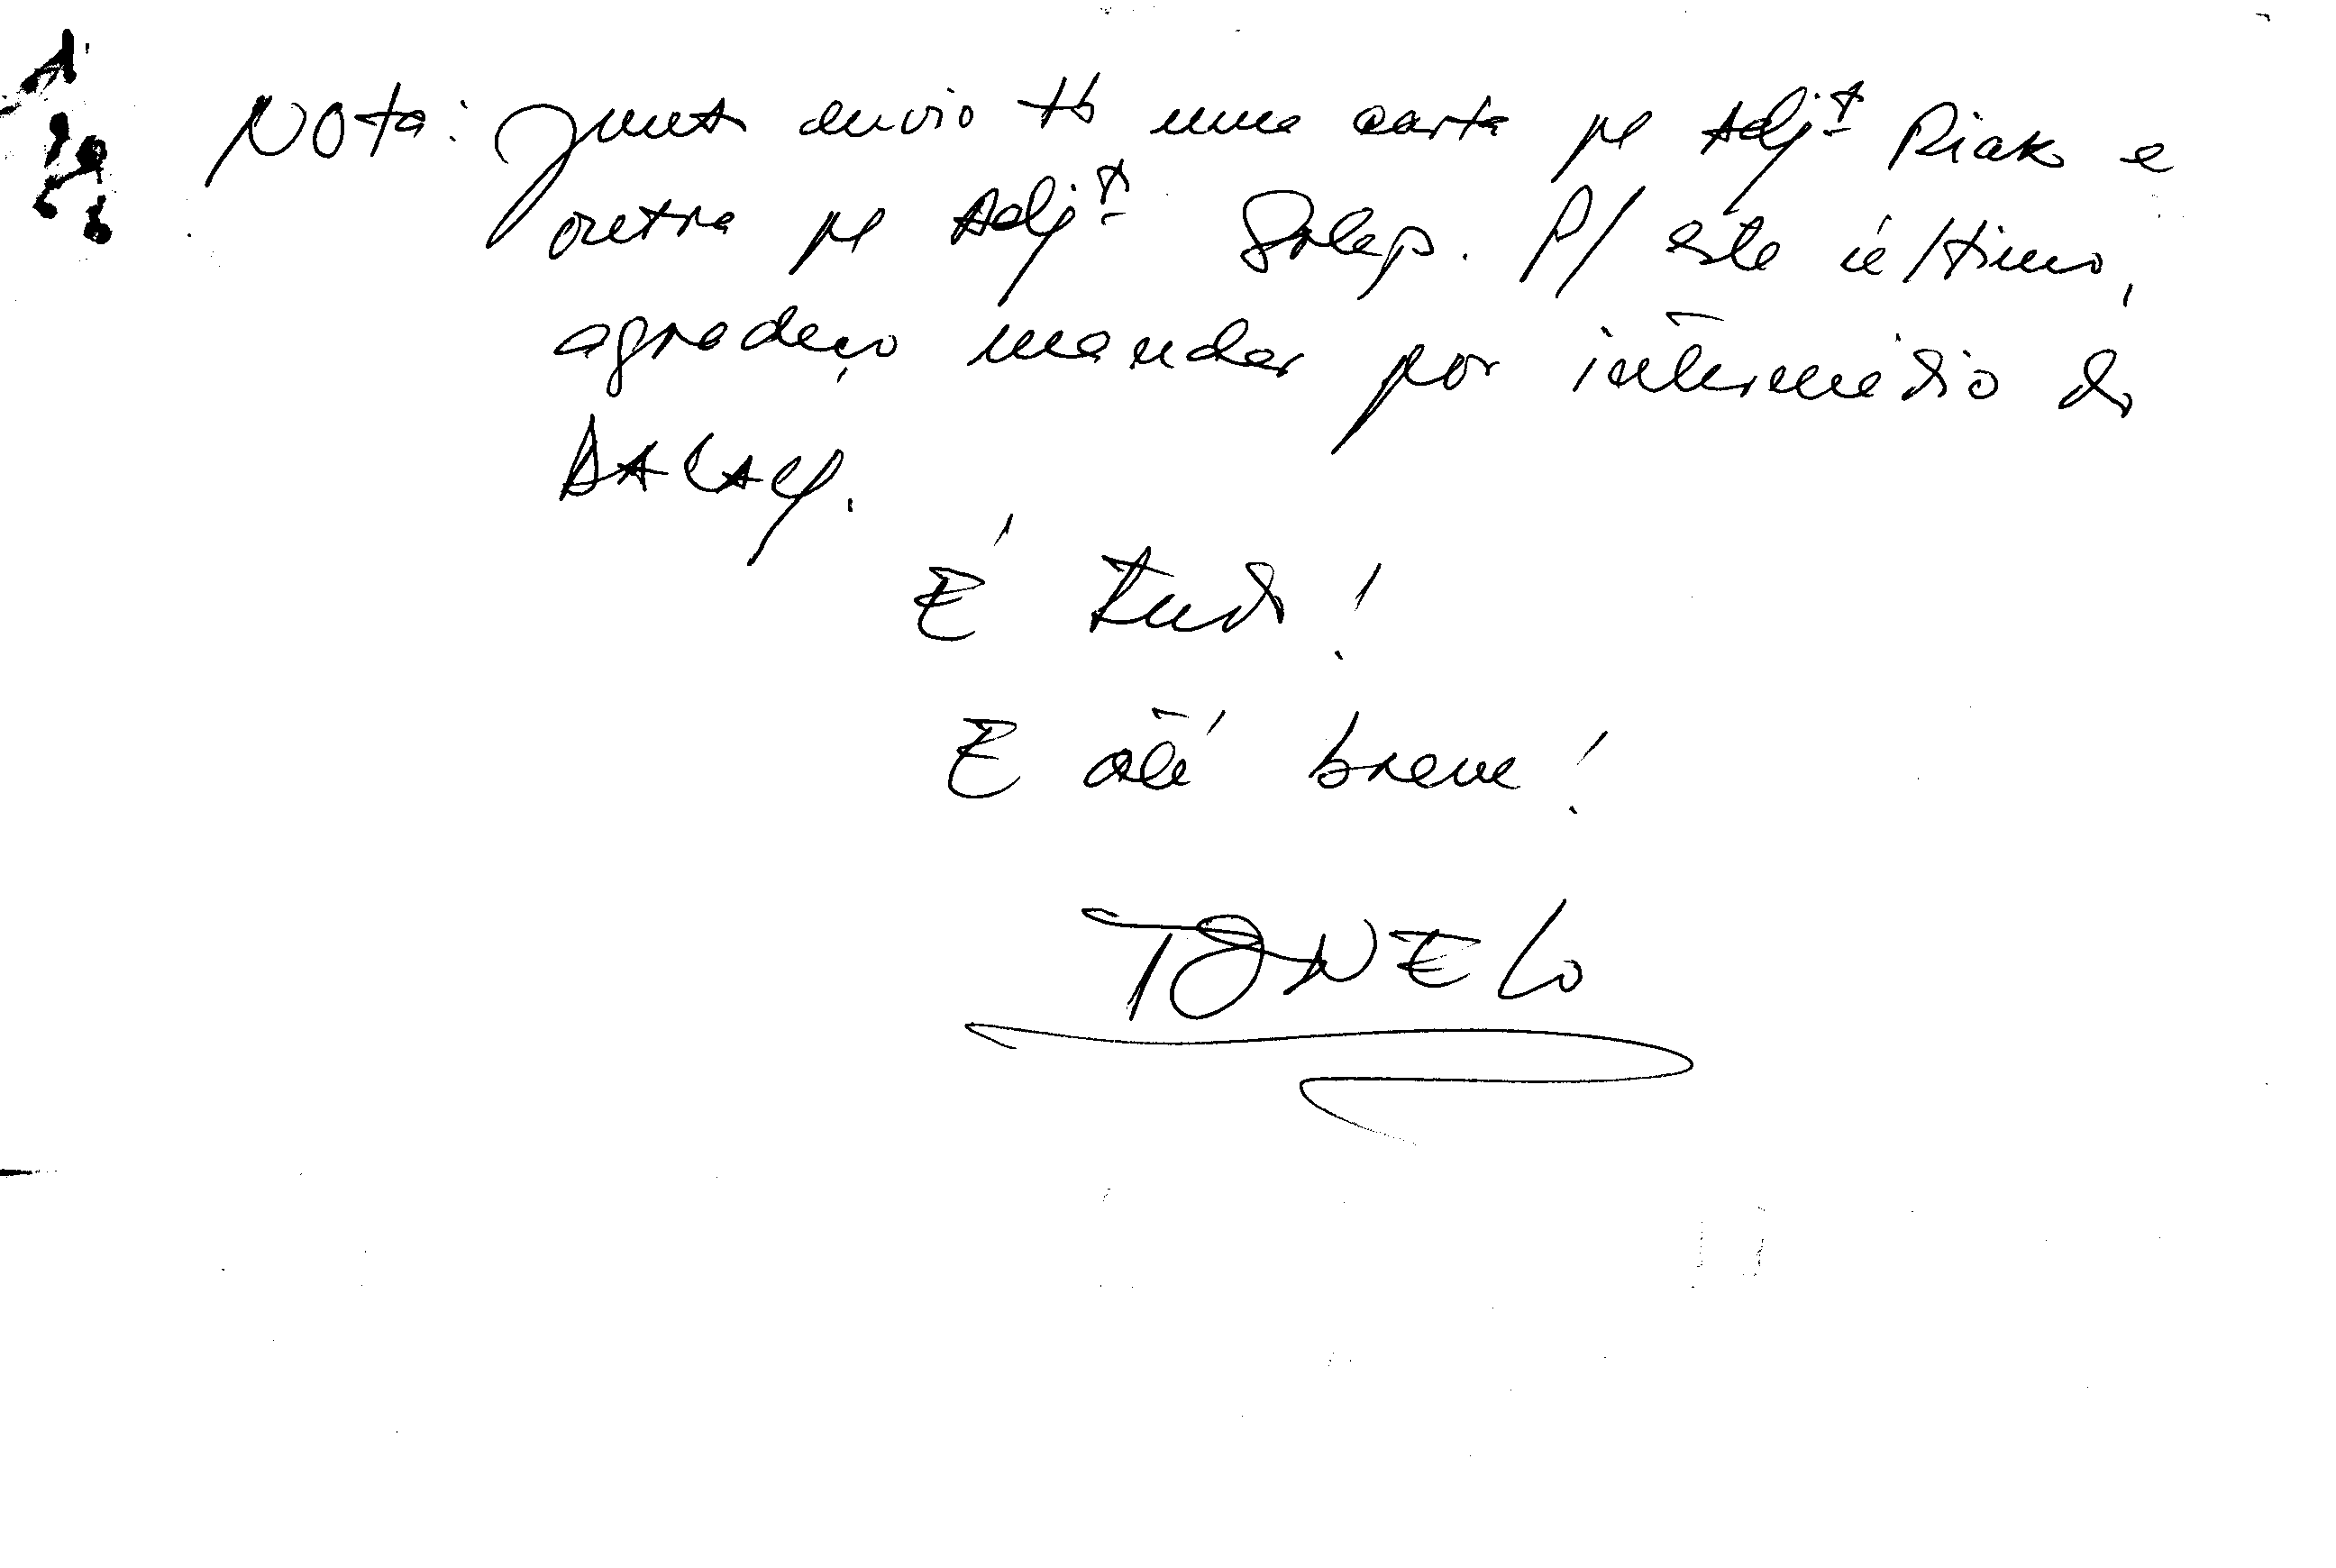 Nota: Junto envio tb uma carta pª Adjt Riak e
outra pª Adjt Solap. P/ este último,
agradeço mandar por intermédio do
DALAY.
É tudo!
E até breve!
TONELO